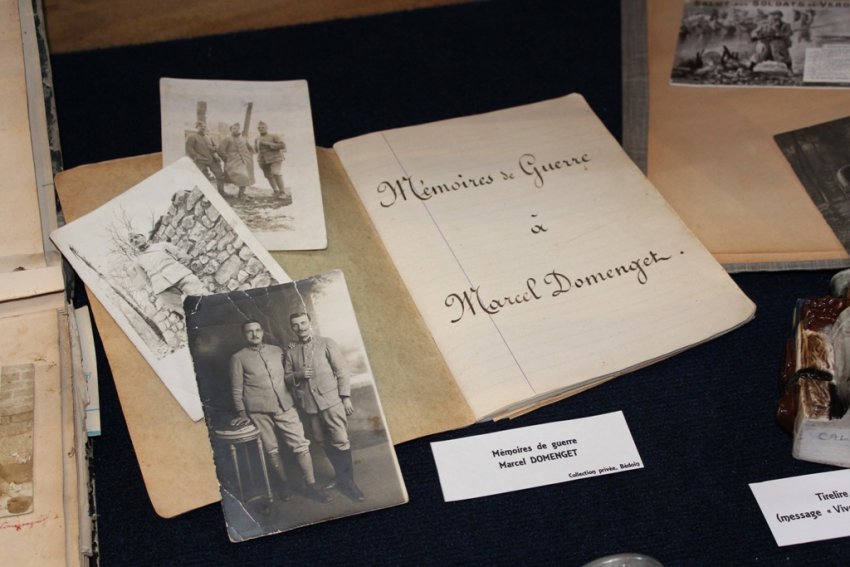 SALUT AUX SOLDATS DE VERDUN
Mémoires de Guerre
à
Marcel Domenget.
Mémoires de guerre
Marcel DOMENGET
Collection privée, Bédoin
CAL
Tirelire
(message « Viv